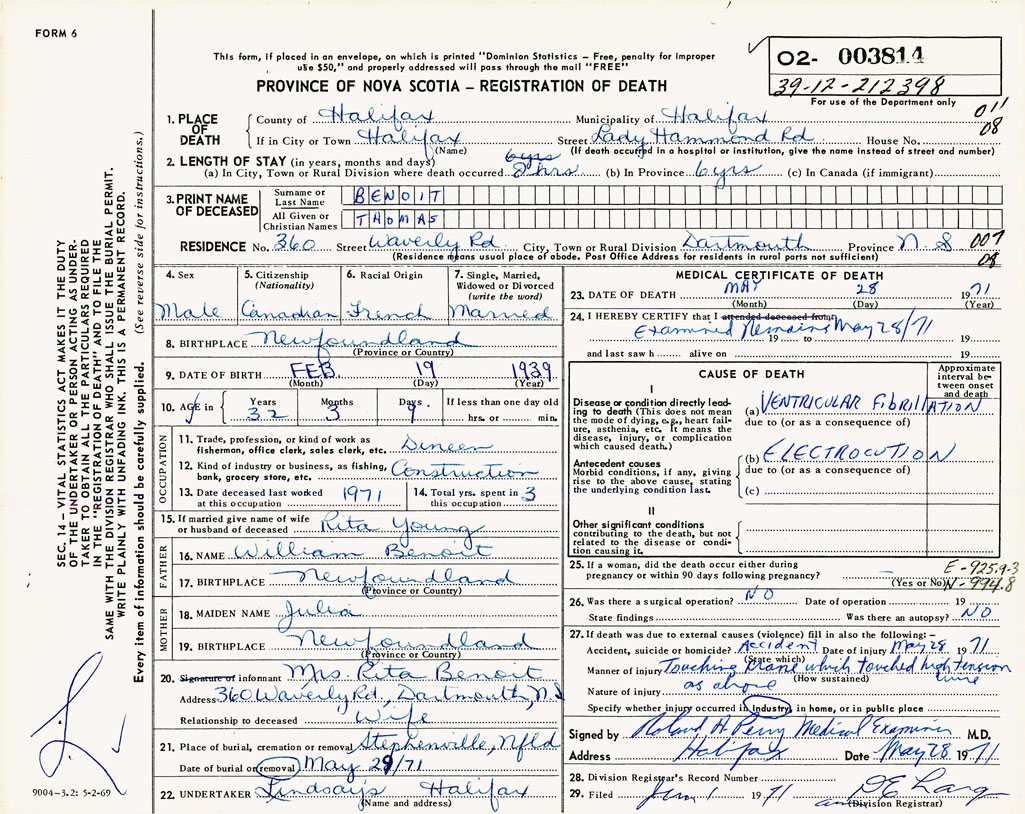 FORM 6
This form, if placed in an envelope, on which is printed "Dominion Statistics – Free, penalty for improper
use $50," and properly addressed will pass through the mail "FREE"
PROVINCE OF NOVA SCOTIA – REGISTRATION OF DEATH
02- 003814
39-12-212398
For use of the Department only
011
08
1. PLACE OF DEATH County of Halifax Municipality of Halifax
If in City or Town Halifax Street Lady Hammond Rd. House No.
(Name) (If death occurred in a hospital or institution, give the name instead of street and number)
2. LENGTH OF STAY (in years, months and days) 6 yrs
(a) In City, Town or Rural Division where death occurred 2 hrs (b) In Province 6 yrs (c) In Canada (if immigrant)
3. PRINT NAME OF DECEASED
Surname or Last Name BENOIT
All Given or Christian Names THOMAS
RESIDENCE No. 360 Street Waverly Rd. City, Town or Rural Division Dartmouth Province N.S
(Residence means usual place of abode. Post Office Address for residents in rural parts not sufficient)
007
08
4. Sex
Male
5. Citizenship
(Nationality)
Canadian
6. Racial Origin
French
7. Single, Married,
Widowed or Divorced
(write the word)
Married
8. BIRTHPLACE Newfoundland
(Province or Country)
9. DATE OF BIRTH FEB. 19 1939
(Month) (Day) (Year)
10. AGE in Years Months Days If less than one day old
32 3 9 hrs. or min.
OCCUPATION
11. Trade, profession, or kind of work as
fisherman, office clerk, sales clerk, etc.
12. Kind of industry or business, as fishing, Construction
bank, grocery store, etc.
13. Date deceased last worked at this occupation 1971
14. Total yrs. spent in this occupation 3
15. If married give name of wife
or husband of deceased Rita Young
FATHER
16. NAME William Benoit
17. BIRTHPLACE Newfoundland
(Province or Country)
MOTHER
18. MAIDEN NAME Julia
19. BIRTHPLACE Newfoundland
(Province or Country)
20. Signature of informant Mrs. Rita Benoit
Address 360 Waverly Rd., Dartmouth, N.S
Relationship to deceased Wife
21. Place of burial, cremation or removal Stephenville, Nfld
Date of burial or removal May 29/71
22. UNDERTAKER Lindsay's Halifax
(Name and address)
MEDICAL CERTIFICATE OF DEATH
23. DATE OF DEATH MAY 28 1971
(Month) (Day) (Year)
24. I HEREBY CERTIFY that I attended deceased from:
Examined Remains May 28/71
19 to 19
and last saw h alive on 19
CAUSE OF DEATH
Approximate interval between onset and death
I
Disease or condition directly leading to death (This does not mean the mode of dying, e.g., heart failure, asthenia, etc. It means the disease, injury, or complication which caused death.)
(a) VENTRICULAR FIBRILLATION
due to (or as a consequence of)
Antecedent causes
Morbid conditions, if any, giving rise to the above cause, stating the underlying condition last.
(b) ELECTROCUTION
due to (or as a consequence of)
(c)
II
Other significant conditions
contributing to the death, but not related to the disease or condition causing it.
25. If a woman, did the death occur either during
pregnancy or within 90 days following pregnancy? –
(Yes or No)
E-925.9-3
N-994.8
26. Was there a surgical operation? NO Date of operation 19
State findings Was there an autopsy? NO
27. If death was due to external causes (violence) fill in also the following: –
Accident, suicide or homicide? Accident Date of injury May 28 1971
(State which)
Manner of injury Touching crane which touched high tension
(How sustained) wire
Nature of injury as above
Specify whether injury occurred in industry, in home, or in public place
Signed by Roland A. Perry Medical Examiner M.D.
Address Halifax Date May 28 1971
28. Division Registrar's Record Number
29. Filed June 1 1971
(Division Registrar)
SEC. 14 – VITAL STATISTICS ACT MAKES IT THE DUTY
OF THE UNDERTAKER OR PERSON ACTING AS UNDERTAKER TO OBTAIN ALL THE PARTICULARS REQUIRED
IN THE "REGISTRATION OF DEATH" AND TO FILE THE
SAME WITH THE DIVISION REGISTRAR WHO SHALL ISSUE THE BURIAL PERMIT.
WRITE PLAINLY WITH UNFADING INK. THIS IS A PERMANENT RECORD.
Every item of information should be carefully supplied. (See reverse side for instructions.)
9004-3.2: 5-2-69